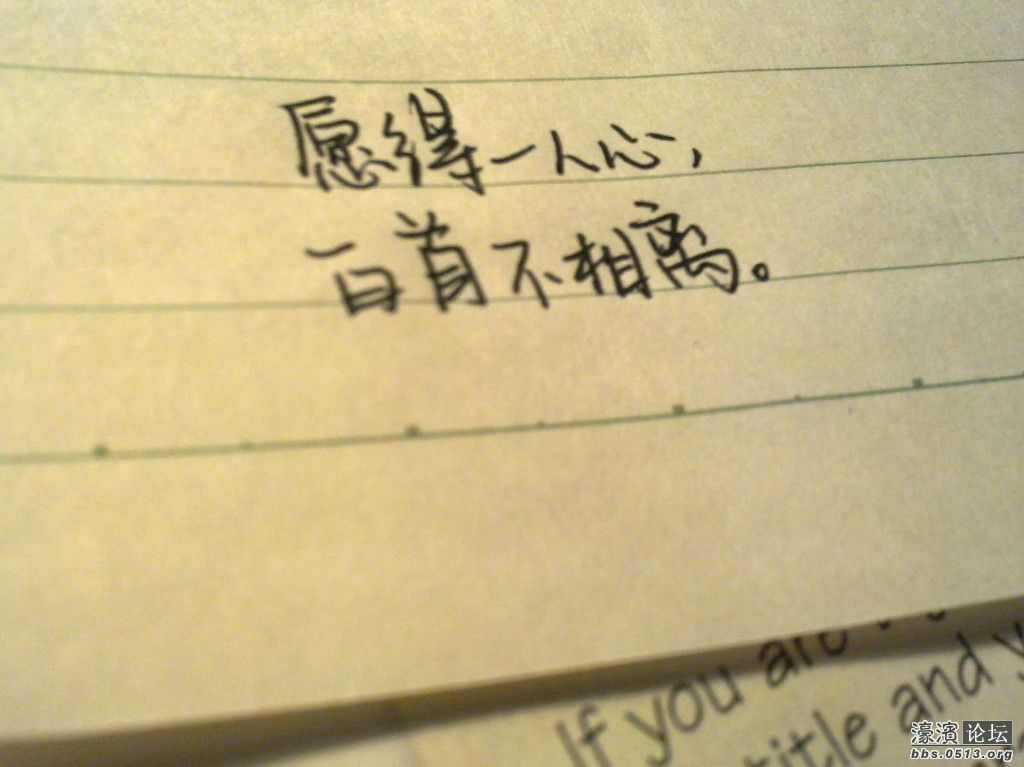 愿得一人心，
白首不相离。
If you are
title and y
濠滨论坛
bbs.0513.org